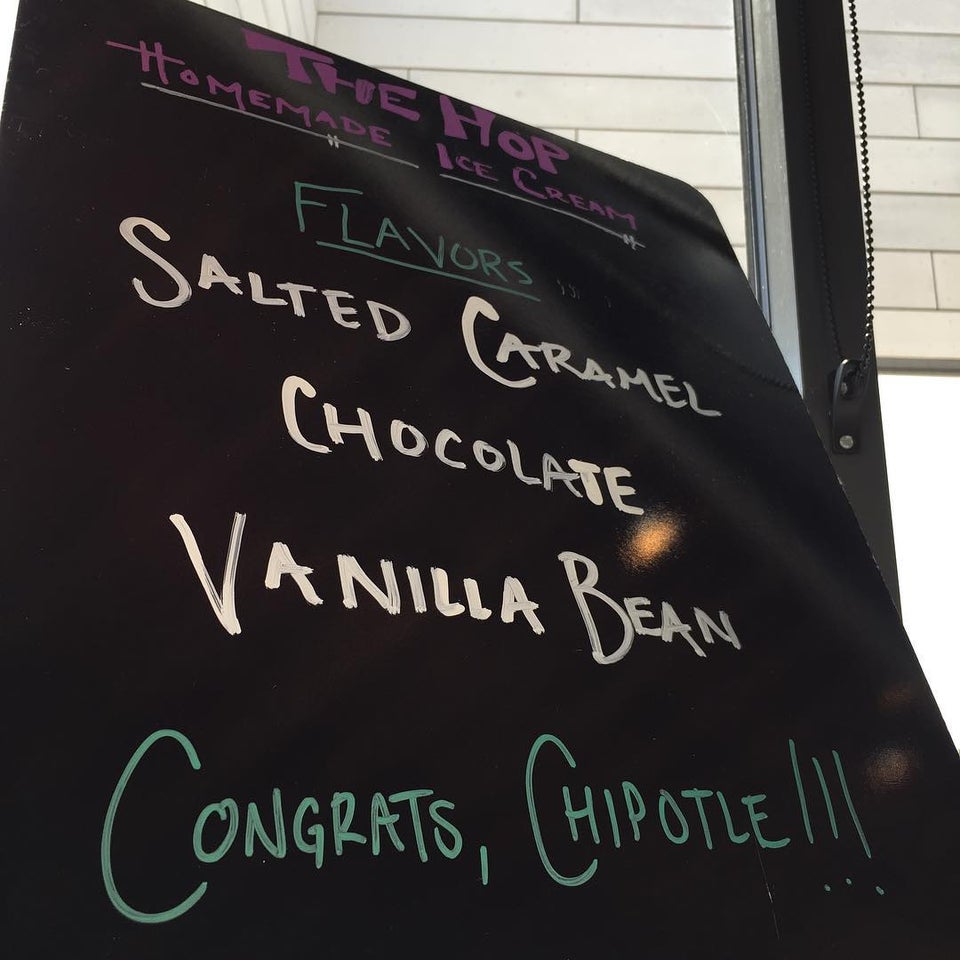 THE HOP
HOMEMADE ICE CREAM
FLAVORS
SALTED CARAMEL
CHOCOLATE
VANILLA BEAN
CONGRATS, CHIPOTLE!!!